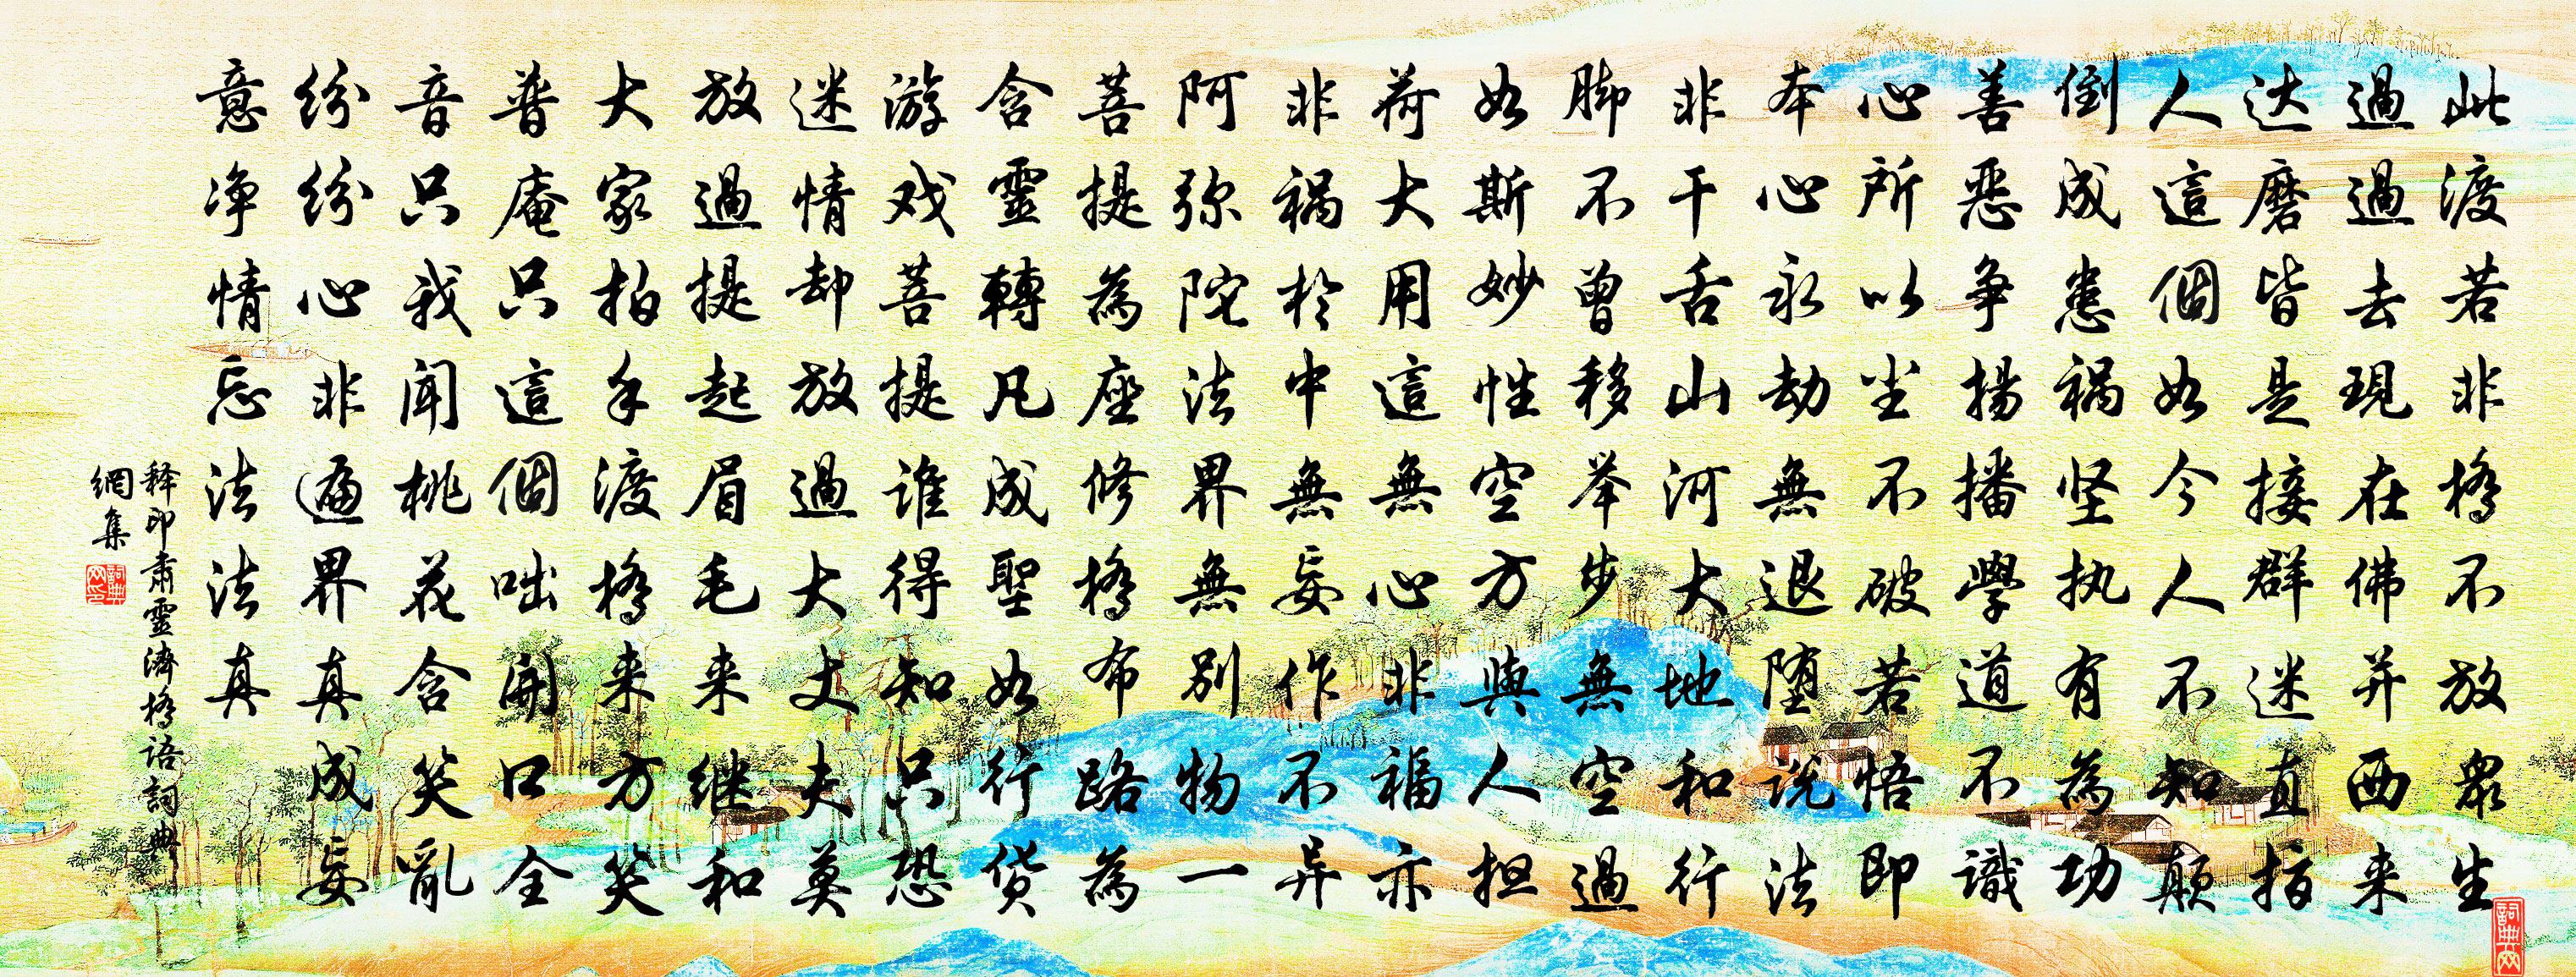 此渡若非橋不放衆生
過過去現在佛并西来
达磨皆是接群迷直指
人這個如今人不知颠
倒成悉祸坚执有為功
善惡争揚播學道不識
心所以坐不破若悟即
本心永劫無退堕说法
非干舌山河大地和行
脚不曾移举步無空過
如斯妙性空方與人担
荷大用這無心非福亦
非祸於中無妄作不异
阿弥陀法界無别物一
菩提為座修橋布路為
含靈轉凡成聖如行货
游戏菩提谁得知只恐
迷情却放過大丈夫莫
放過提起眉毛来继和
大家拍手渡橋来方笑
普庵只這個咄開口全
音只我闻桃花含笑亂
纷纷心非遍界真成妄
意净情忘法法真
释印肅靈濟橋语詞典
網集